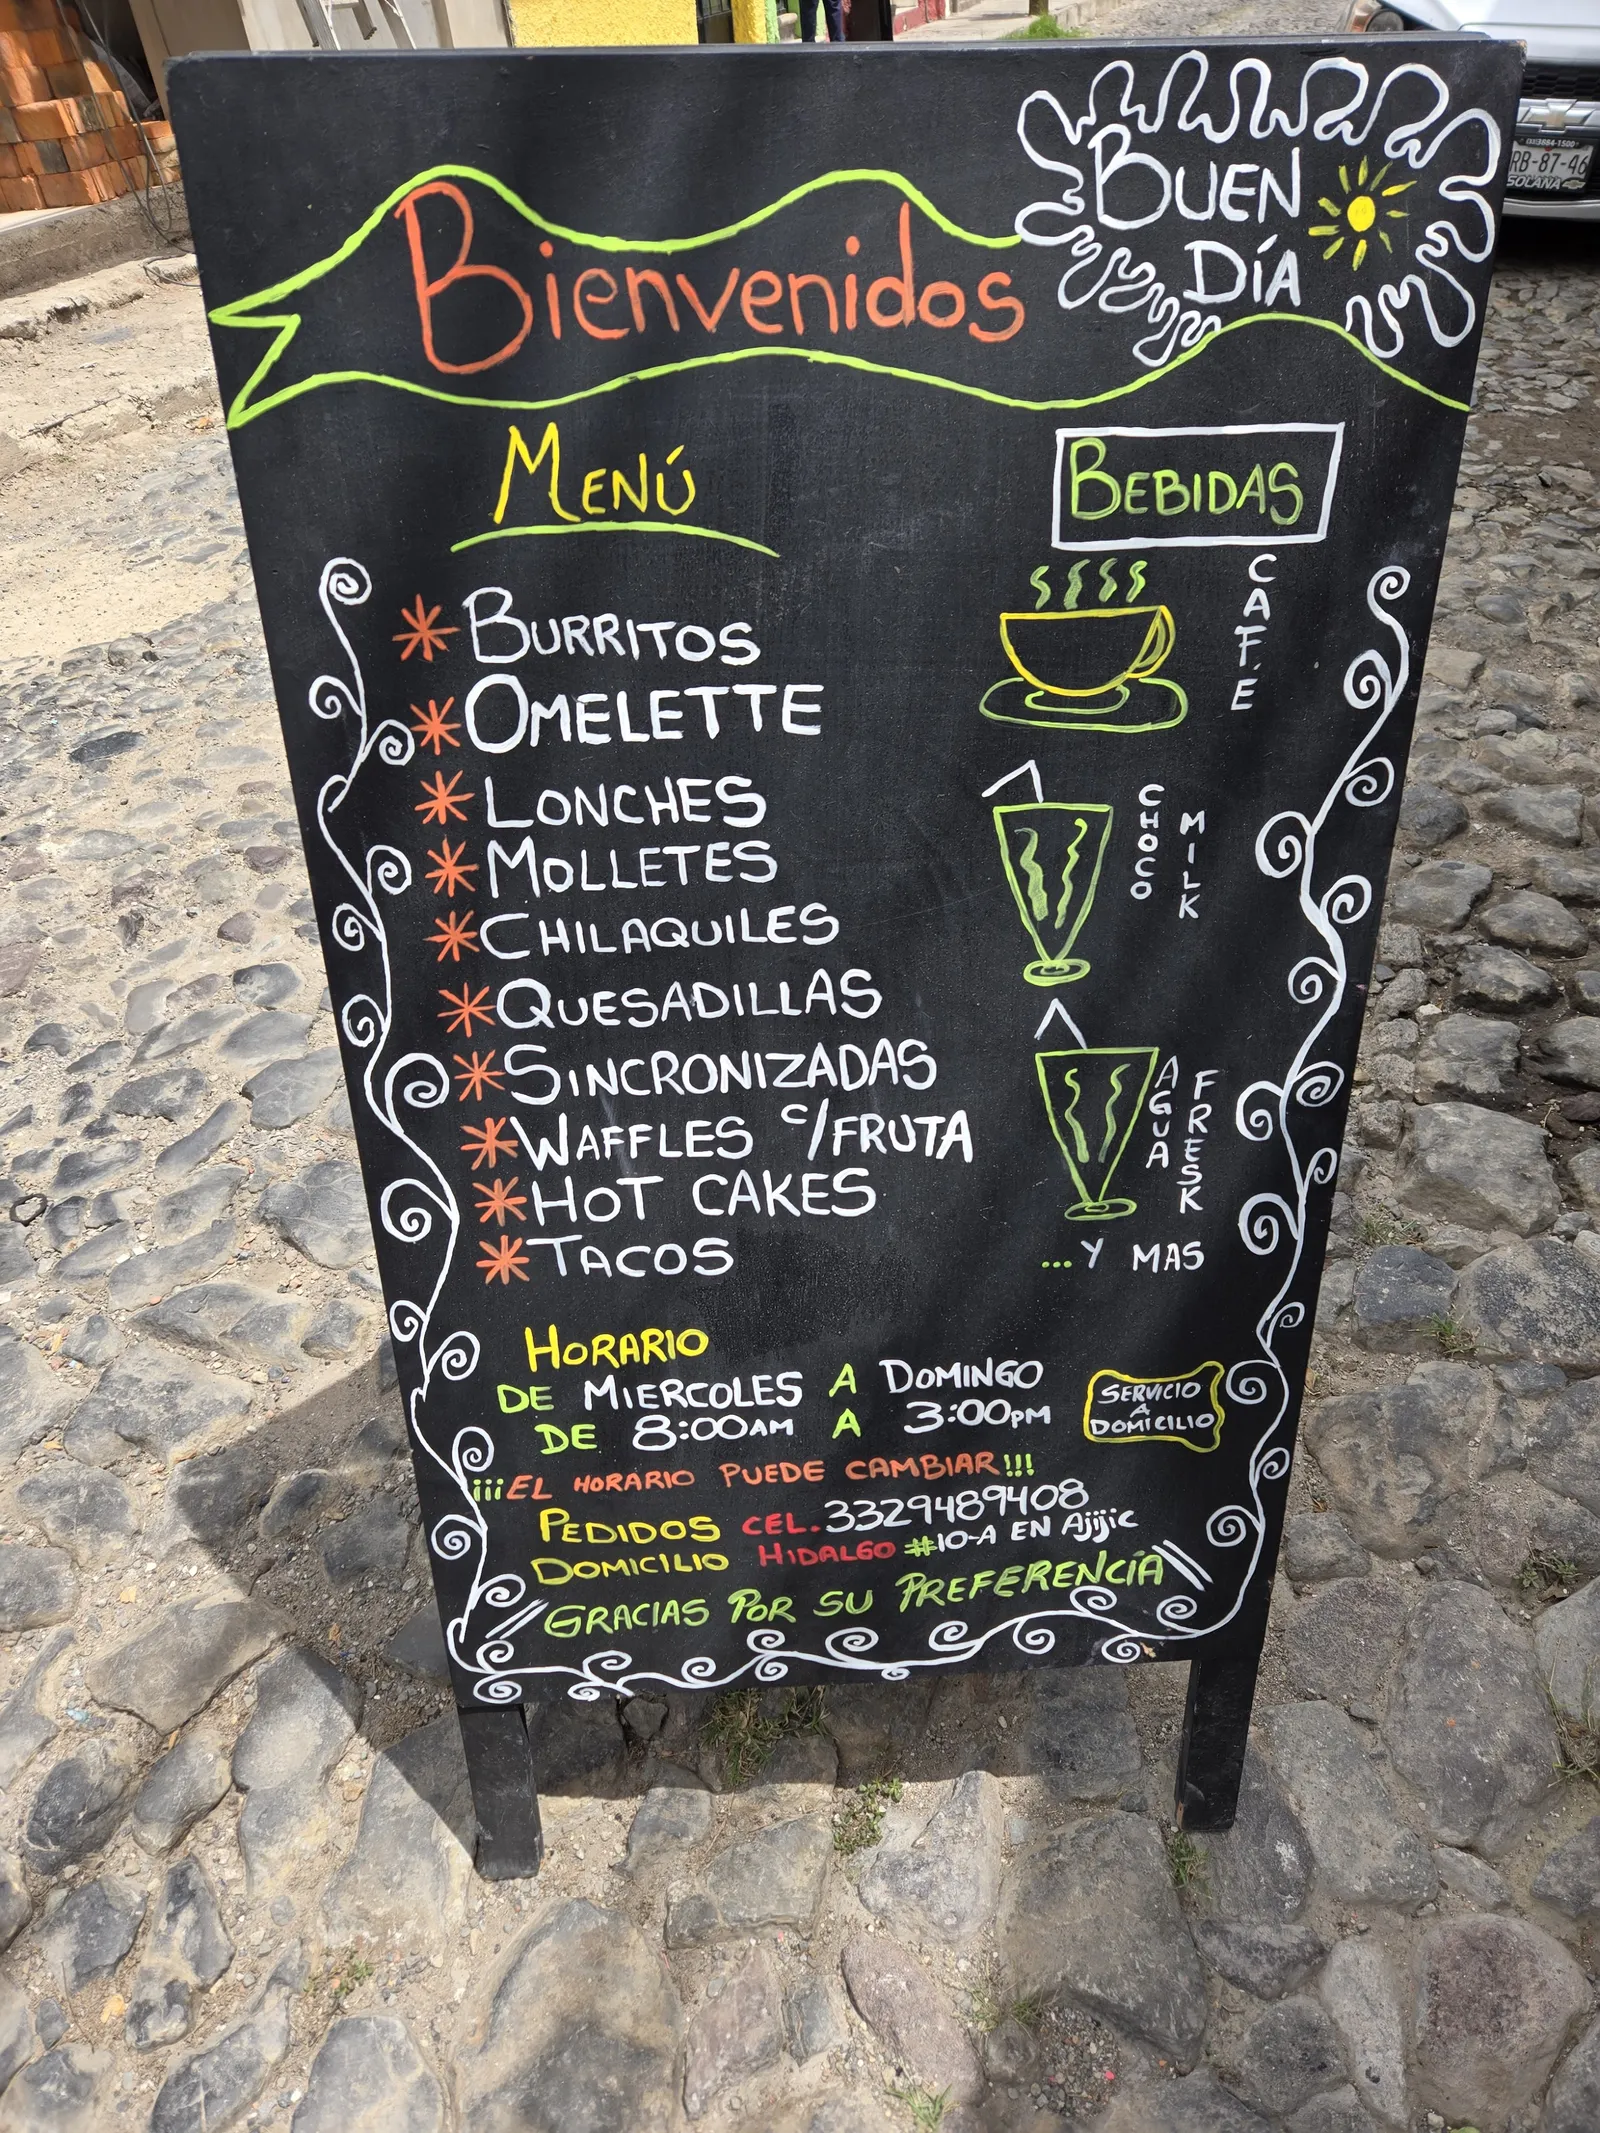 BUEN
DÍA
Bienvenidos
MENÚ
BURRITOS
OMELETTE
LONCHES
MOLLETES
CHILAQUILES
QUESADILLAS
SINCRONIZADAS
WAFFLES c/FRUTA
HOT CAKES
TACOS
BEBIDAS
CAFÉ
CHOCO MILK
AGUA FRESK
...Y MAS
HORARIO
DE MIERCOLES A DOMINGO
DE 8:00AM A 3:00PM
SERVICIO
A
DOMICILIO
¡¡¡EL HORARIO PUEDE CAMBIAR!!!
PEDIDOS CEL. 3329489408
DOMICILIO HIDALGO #10-A EN Ajijic
GRACIAS POR SU PREFERENCIA
(33)3884-1500
RB-87-46
SOLANA